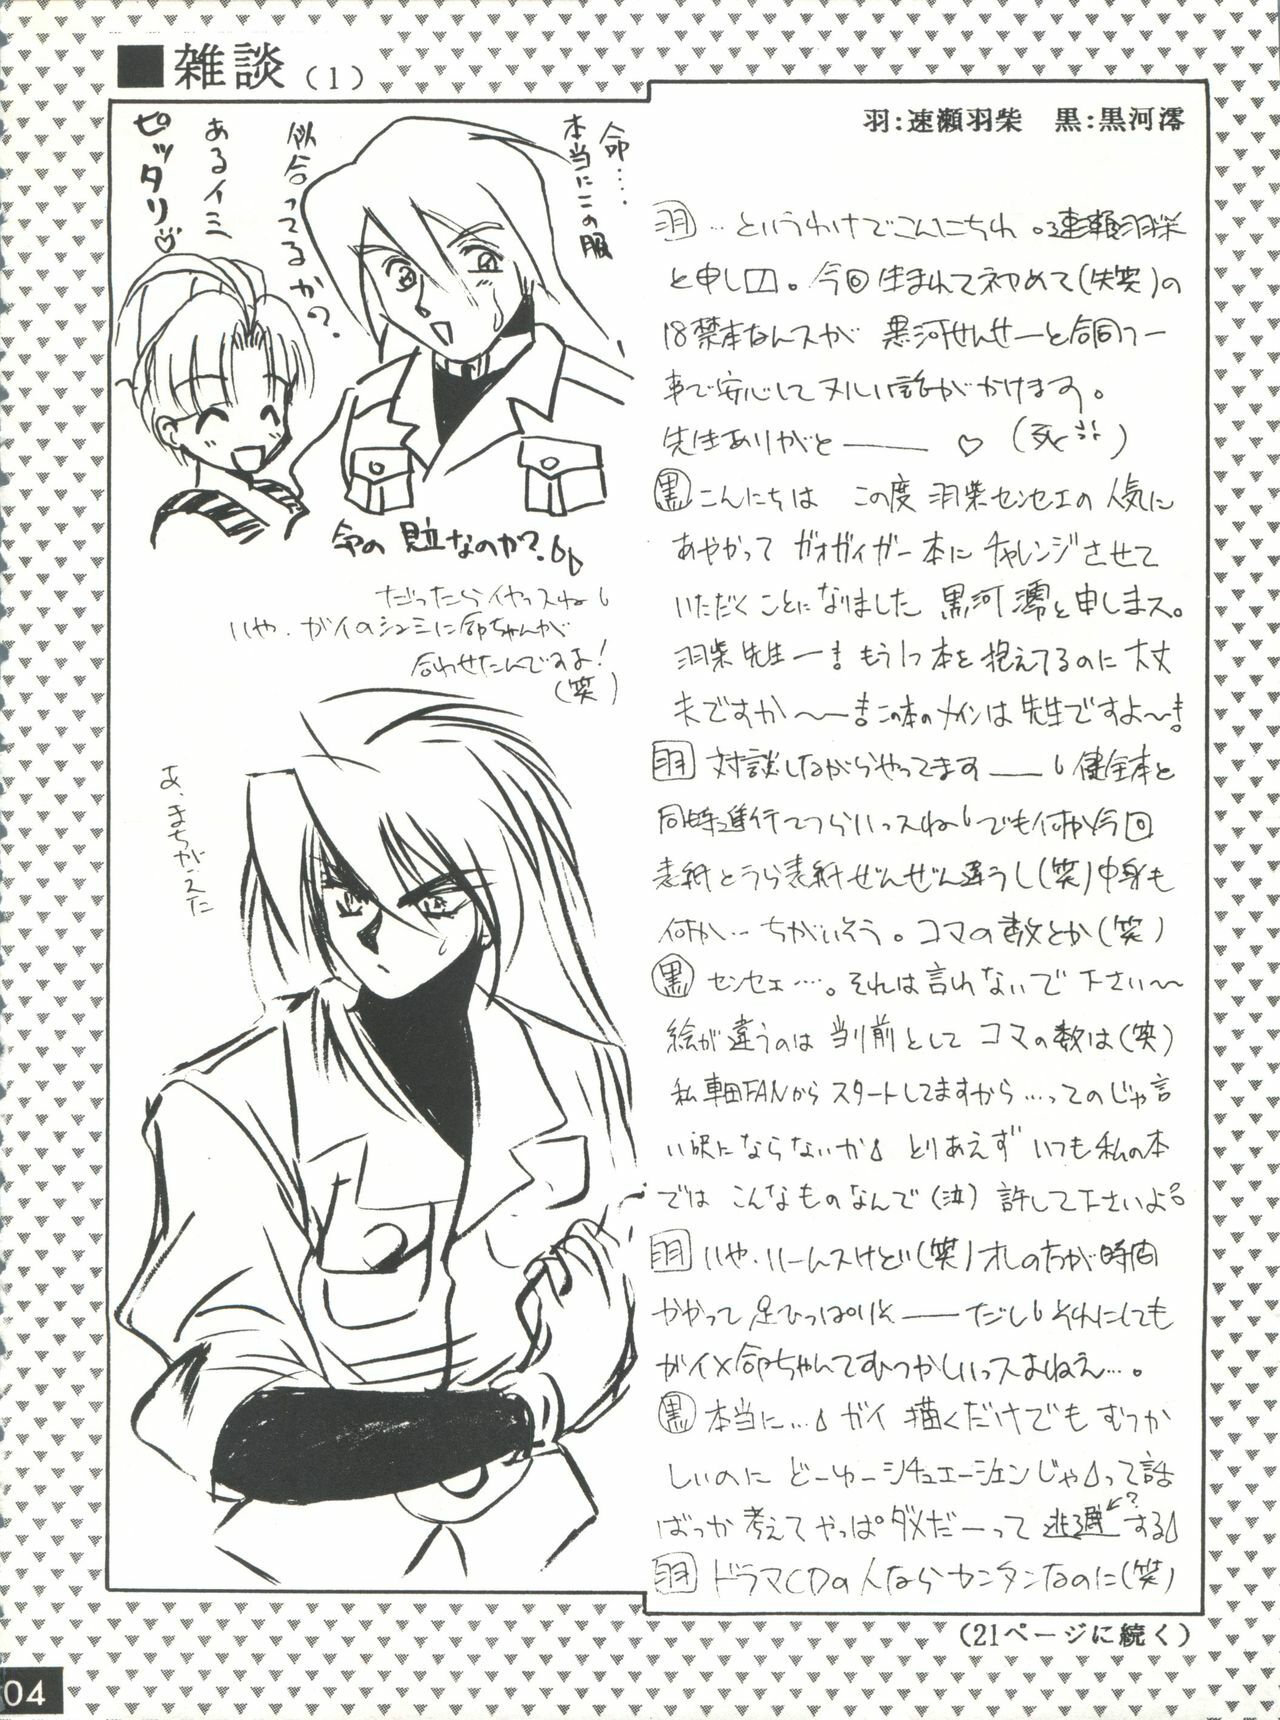 ■雑談(1)
命‥‥
本当にこの服
似合ってるか?
あるイミ
ピッタリ♡
命の 見立なのか?
だったらイヤっスね
いや、ガイのシュミに命ちゃんが
合わせたんですよ!
(笑)
あ、まちがえた
羽:速瀬羽柴　黒:黒河澪
羽 …というわけでこんにちわ。速瀬羽柴
と申し□。今回生まれて初めて(失笑)の
18禁本なんスが 黒河せんせーと合同って
事で安心してヌルい話がかけます。
先生ありがと―― ♡ (死)
黒 こんにちは この度 羽柴センセエの人気に
あやかって ガオガイガー本に チャレンジさせて
いただくことになりました 黒河澪と申しまス。
羽柴先生ー! もう1つ本を抱えてるのに大丈
夫ですか〜〜! この本のメインは先生ですよ〜!
羽 対談しながらやってます―― 健全本と
同時進行でつらいっスね でも何か今回
表紙とうら表紙ぜんぜん違うし(笑)中身も
何か…ちがいそう。コマの数とか(笑)
黒 センセエ…。それは言わないで下さい〜〜
絵が違うのは当り前として コマの数は(笑)
私車田FANからスタートしてますから…ってのじゃ言
い訳にならないか とりあえず いつも私の本
では こんなものなんで(泣) 許して下さいよ
羽 いや、いーんスけど(笑)オレの方が時間
かかって足ひっぱりそ――だし それにしても
ガイ×命ちゃんてむつかしいっスよねえ…。
黒 本当に… ガイ 描くだけでも むつか
しいのに どーゆーシチュエーションじゃって話
ばっか考えて やっぱダメだーって 逃避?する
羽 ドラマCDの人ならカンタンなのに(笑)
(21ページに続く)
04